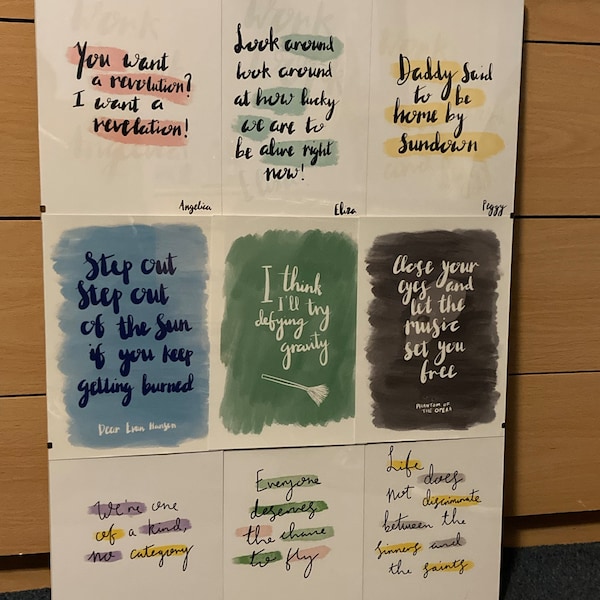 You want
a revolution?
I want a
revelation!
Angelica
Look around
look around
at how lucky
we are to
be alive right
now!
Eliza
Daddy said
to be
home by
sundown
Peggy
Step out
Step out
of the Sun
if you keep
getting burned
Dear Evan Hansen
I think
I'll try
defying
gravity
Close your
eyes and
let the
music
set you
free
PHANTOM OF
THE OPERA
We're one
of a kind
no category
Everyone
deserves
the chance
to fly
Life
does
not discriminate
between the
sinners and
the saints